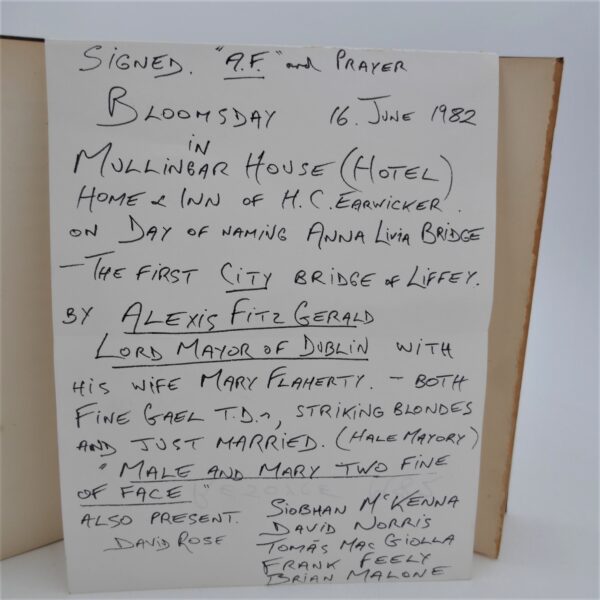 SIGNED. "A.F." and PRAYER
BLOOMSDAY 16. JUNE 1982
IN
MULLINGAR HOUSE (HOTEL)
HOME & INN OF H.C. EARWICKER.
ON DAY OF NAMING ANNA LIVIA BRIDGE
- THE FIRST CITY BRIDGE of LIFFEY.
BY ALEXIS FITZ GERALD
LORD MAYOR OF DUBLIN WITH
HIS WIFE MARY FLAHERTY. - BOTH
FINE GAEL T.D.s, STRIKING BLONDES
AND JUST MARRIED. (HALE MAYORY)
"MALE AND MARY TWO FINE
OF FACE"
ALSO PRESENT. SIOBHAN McKENNA
DAVID NORRIS
DAVID ROSE TOMÁS MAC GIOLLA
FRANK FEELY
BRIAN MALONE